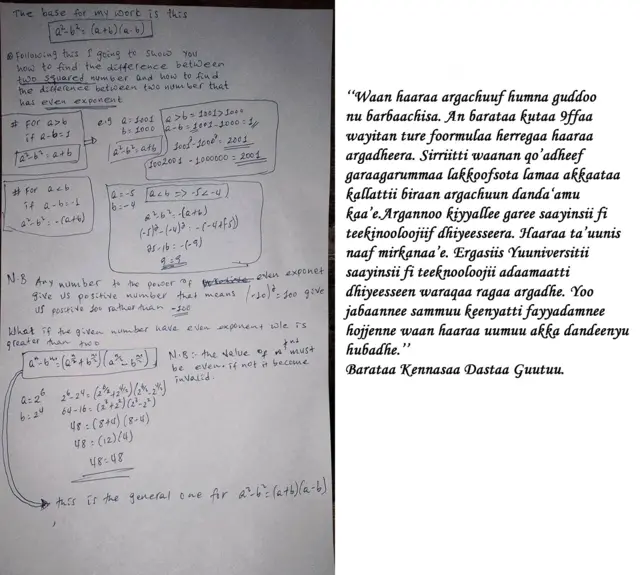 The base for my work is this
a²-b²=(a+b)(a-b)
Following this I going to show you
how to find the difference between
two squared number and how to find
the difference between two number that
has even exponent
# For a>b
if a-b=1
a²-b²=a+b
e.g a=1001
b=1000
a²-b²=a+b
a>b=1001>1000
a-b=1001-1000=1
1001²-1000²=2001
1002001-1000000=2001
# For a<b
if a-b=-1
a²-b²=-(a+b)
a=-5
b=-4
a<b => -5<-4
a²-b²=-(a+b)
(-5)²-(-4)²=-(-4+(-5))
25-16=-(-9)
9=9
N.B Any number to the power of even exponet
give us positive number that means (-10)²=100 give
us positive 100 rather than -100
What if the given number have even exponent wc is
greater than two
N.B:- the value of must
be even. if not it become
invalid.
a=2⁶
b=2⁴
2⁶-2⁴=(2^6/2+2^4/2)(2^6/2-2^4/2)
64-16=(2³+2²)(2³-2²)
48=(8+4)(8-4)
48=(12)(4)
48=48
this is the general one for a²-b²=(a+b)(a-b)
‘‘Waan haaraa argachuuf humna guddoo
nu barbaachisa. An barataa kutaa 9ffaa
wayitan ture foormulaa herregaa haaraa
argadheera. Sirriitti waanan qo’adheef
garaagarummaa lakkoofsota lamaa akkaataa
kallattii biraan argachuun danda’amu
kaa’e.Argannoo kiyyallee garee saayinsii fi
teekinooloojiif dhiyeesseera. Haaraa ta’uunis
naaf mirkanaa’e. Ergasiis Yuuniversitii
saayinsii fi teeknooloojii adaamaatti
dhiyeesseen waraqaa ragaa argadhe. Yoo
jabaannee sammuu keenyatti fayyadamnee
hojjenne waan haaraa uumuu akka dandeenyu
hubadhe.’’
Barataa Kennasaa Dastaa Guutuu.